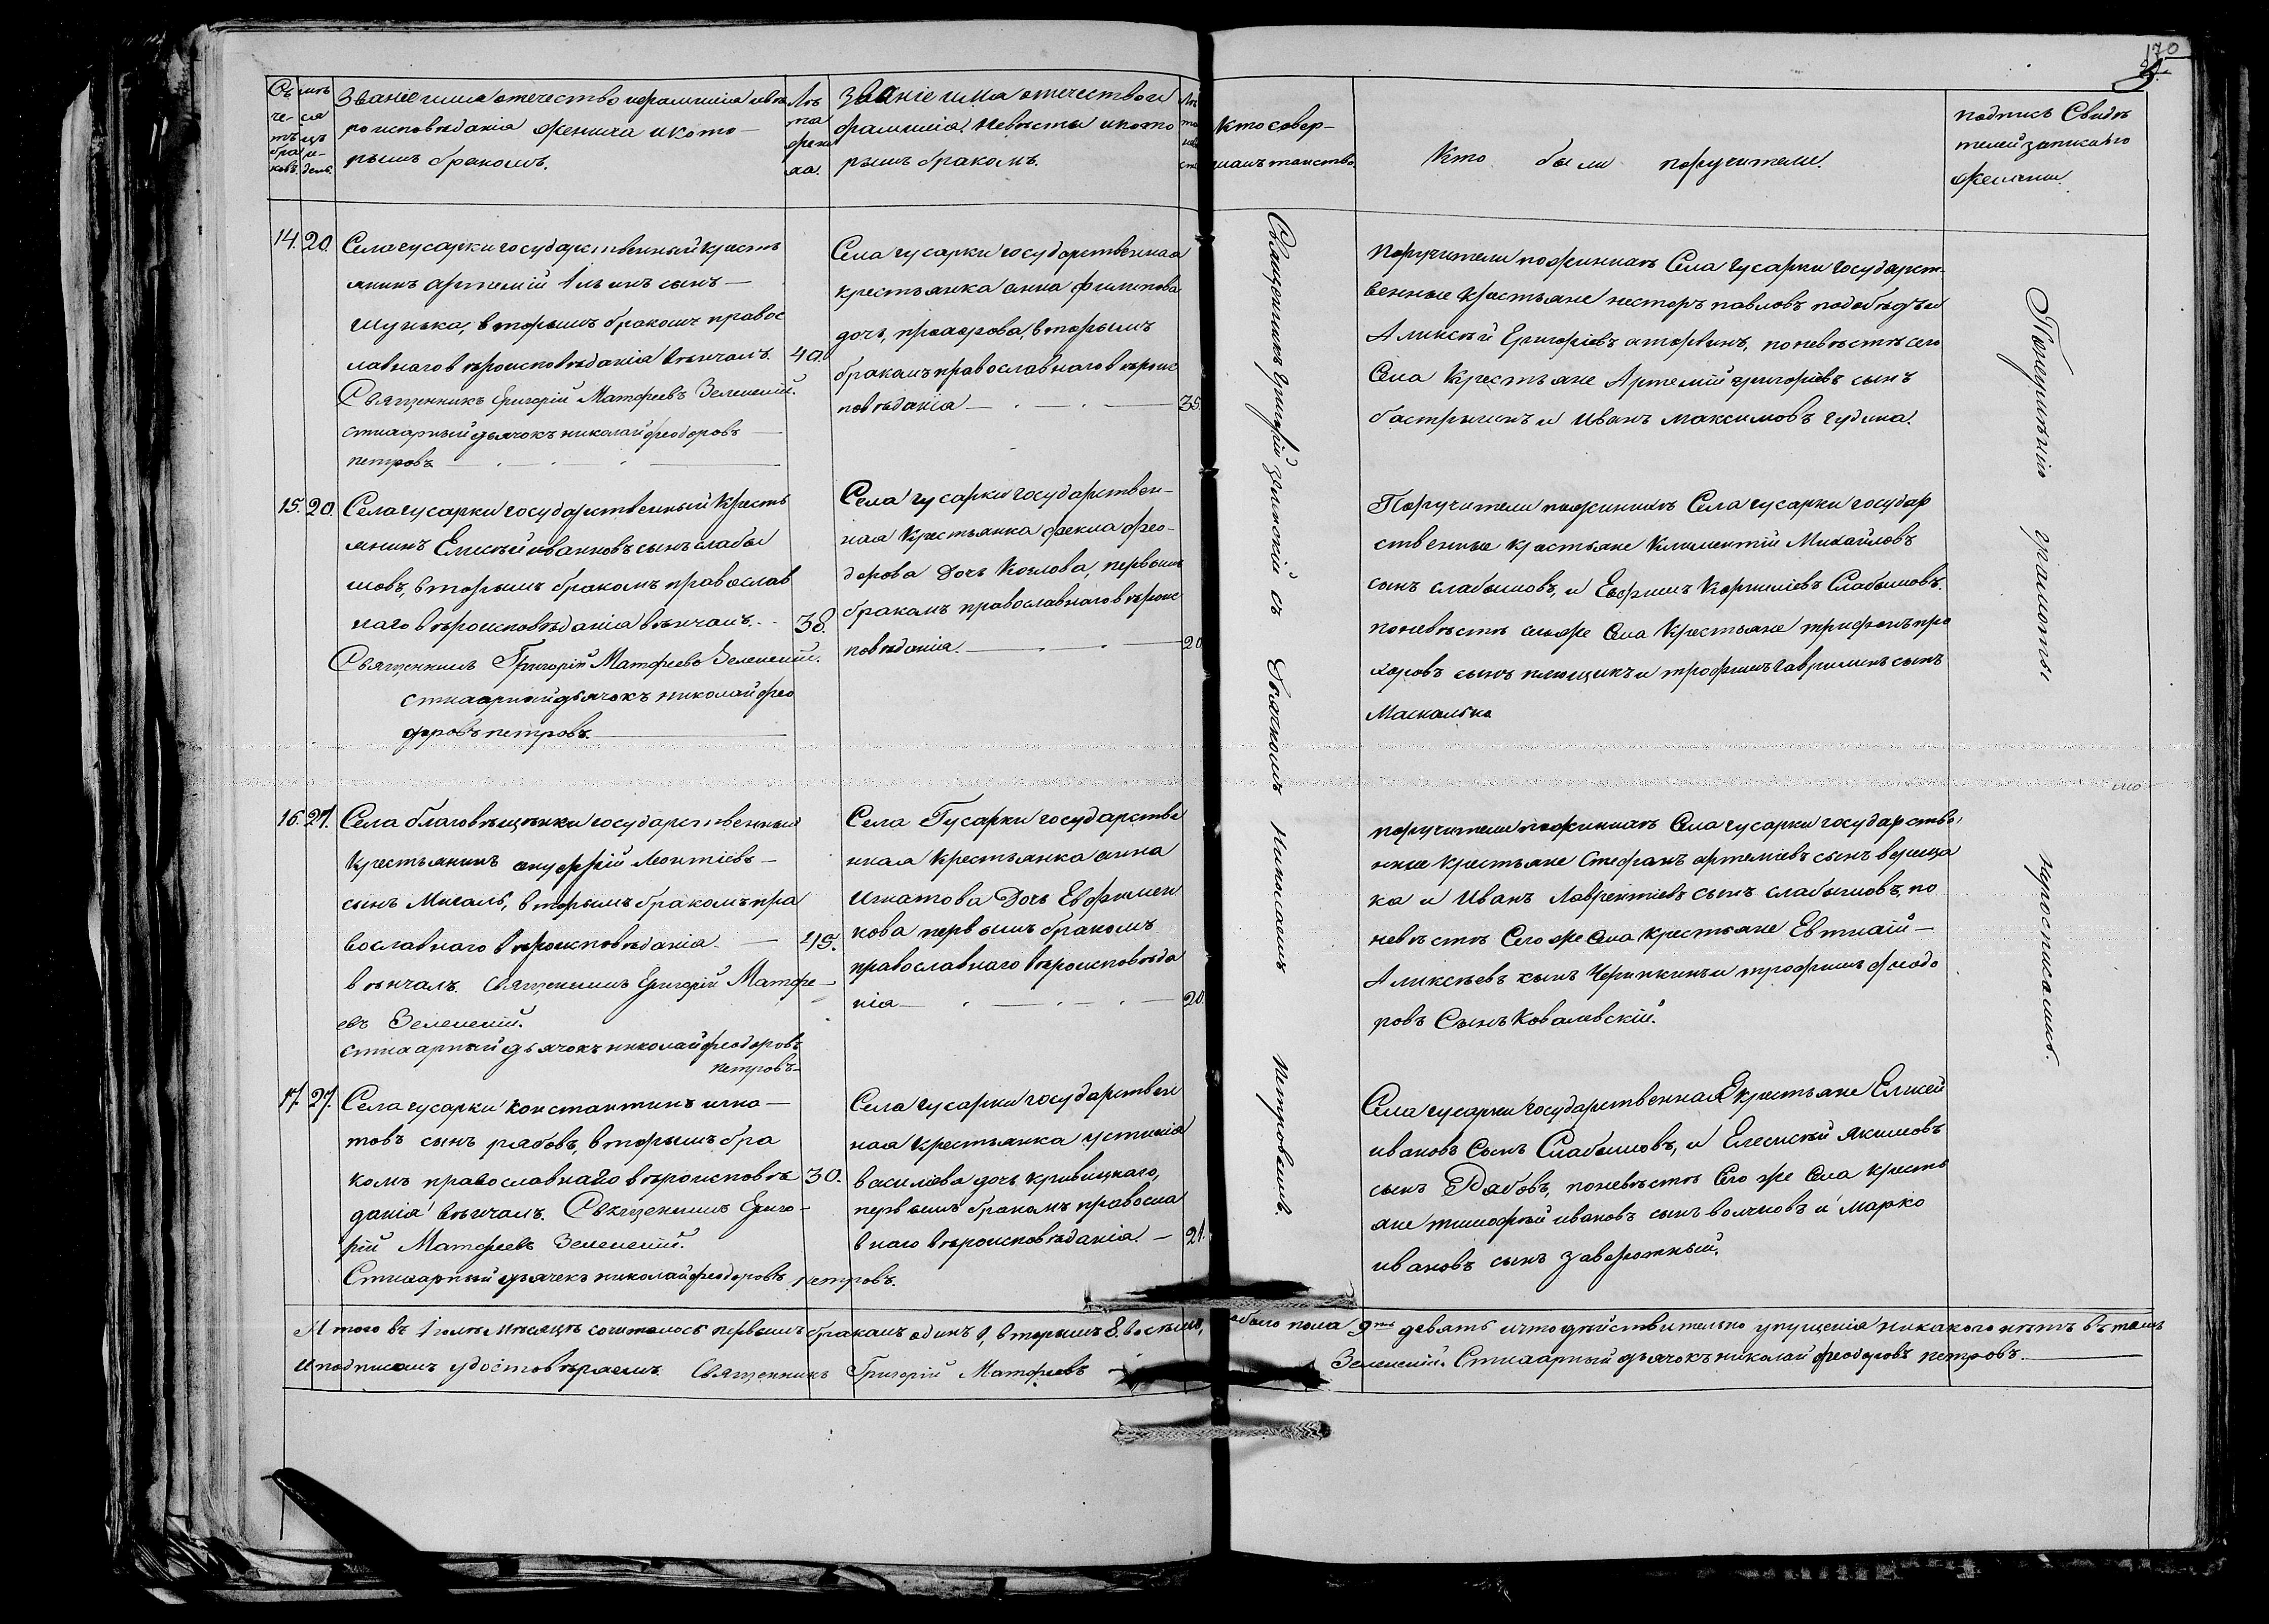 170
Счетъ браковъ.
Мѣсяцъ и день.
Званіе имя отечество и фамилія и вѣ
ро исповѣданія жениха и кото-
рымъ бракомъ.
Лѣта жениха.
Званіе имя отечество и
фамилія. Невѣсты и кото
рымъ бракомъ.
Кто совер-
шалъ таинство
Кто были поручители.
подпись Свидѣ
телей записи по
желанію.
14. 20.
Села гусарки государственный кресть
янинъ артемій Ильинъ сынъ —
шулька, вторымъ бракомъ правос
лавнаго вѣроисповѣданія вѣнчалъ. 40.
Священникъ Григорій Матфеевъ Зеленскій.
стихарный дьячокъ николай феодоровъ
петровъ
Села гусарки государственная
крестьянка анна филипова
дочь, вторымъ
бракомъ православнаго вѣроис
повѣданія — 35.
Поручители по женихѣ Села гусарки государст-
венные крестьяне несторъ павловъ и
Аликсѣй Григоріевъ по невѣстѣ сего
Села Крестьяне Артемій григоріевъ сынъ
бастрыгинъ и Иванъ максимовъ гудина.
15. 20.
Села гусарки государственный Кресть
янинъ Елисѣй ивановъ сынъ слабы
шовъ, вторымъ бракомъ православ
наго вѣроисповѣданія вѣнчалъ. 38.
Священникъ Григорій Матфеевъ Зеленскій.
стихарный дьячокъ николай фео
доровъ петровъ.
Села гусарки государствен-
ная Крестьянка фекла фео-
дорова Дочь Козлова, первымъ
бракомъ православнаго вѣроис
повѣданія. — 20.
Поручители по женихѣ Села гусарки государ
ственные крестьяне Климентій Михайловъ
сынъ слабышовъ, и Ефримъ Корниліевъ Слабышовъ.
по невѣстѣ Села Крестьяне трифонъ про
хоровъ сынъ и трофимъ гавриминъ сынъ
Маскалько
16. 27.
Села благовѣщенки государственный
Крестьянинъ онуфрій Леонтіевъ —
сынъ Мигаль, вторымъ бракомъ пра
вославнаго вѣроисповѣданія. — 45.
вѣнчалъ. Священникъ Григорій Матфе-
евъ Зеленскій.
стихарный дьячокъ николай феодоровъ
петровъ
Села Гусарки государстве
нная Крестьянка анна
Игнатова Дочь Евфимен
кова первымъ бракомъ
православнаго вѣроисповѣда
нія — 20.
поручители по женихѣ Села гусарки государстве,
нные крестьяне Стефанъ артеміевъ сынъ вереща
ка и Иванъ Лаврентіевъ сынъ слабышовъ, по
невѣстѣ Сего же Села крестьяне Евтихій —
Аликсѣевъ сынъ Черинкинъ и трофимъ феодо
ровъ Сынъ Ковалевскій.
17. 27.
Села гусарки константинъ игна-
товъ сынъ рябовъ, вторымъ бра
комъ православнаго вѣроисповѣ 30.
данія вѣнчалъ. Священникъ Григо-
рій Матфеевъ Зеленскій.
Стихарный дьячекъ николай феодоровъ петровъ.
Села гусарки государствен
ная крестьянка устинія
василіева дочь кривицкаго,
первымъ бракомъ правосла
внаго вѣроисповѣданія. — 21.
Села гусарки государственная крестьяне Елисей
ивановъ Сынъ Слабышовъ, и Елисѣй якимовъ
сынъ Рябовъ, по невѣстѣ Сего же Села кресть
яне тимофѣй ивановъ сынъ волчковъ и марко
ивановъ сынъ заворотный.
Священникъ Григорій зеленскій съ Дьячкомъ Николаемъ Петровымъ.
По неумѣнію грамоты неросписались.
Итого въ Іюлѣ Мѣсяцѣ сочиталось первымъ бракомъ одинъ 1, вторымъ 8. восѣмь, обоего пола 9ть девять и что дѣйствительно упущенія никакого нѣтъ въ томъ
и подписомъ удостовѣряемъ. Священникъ Григорій Матфеевъ Зеленскій. Стихарный дьячокъ николай феодоровъ петровъ.